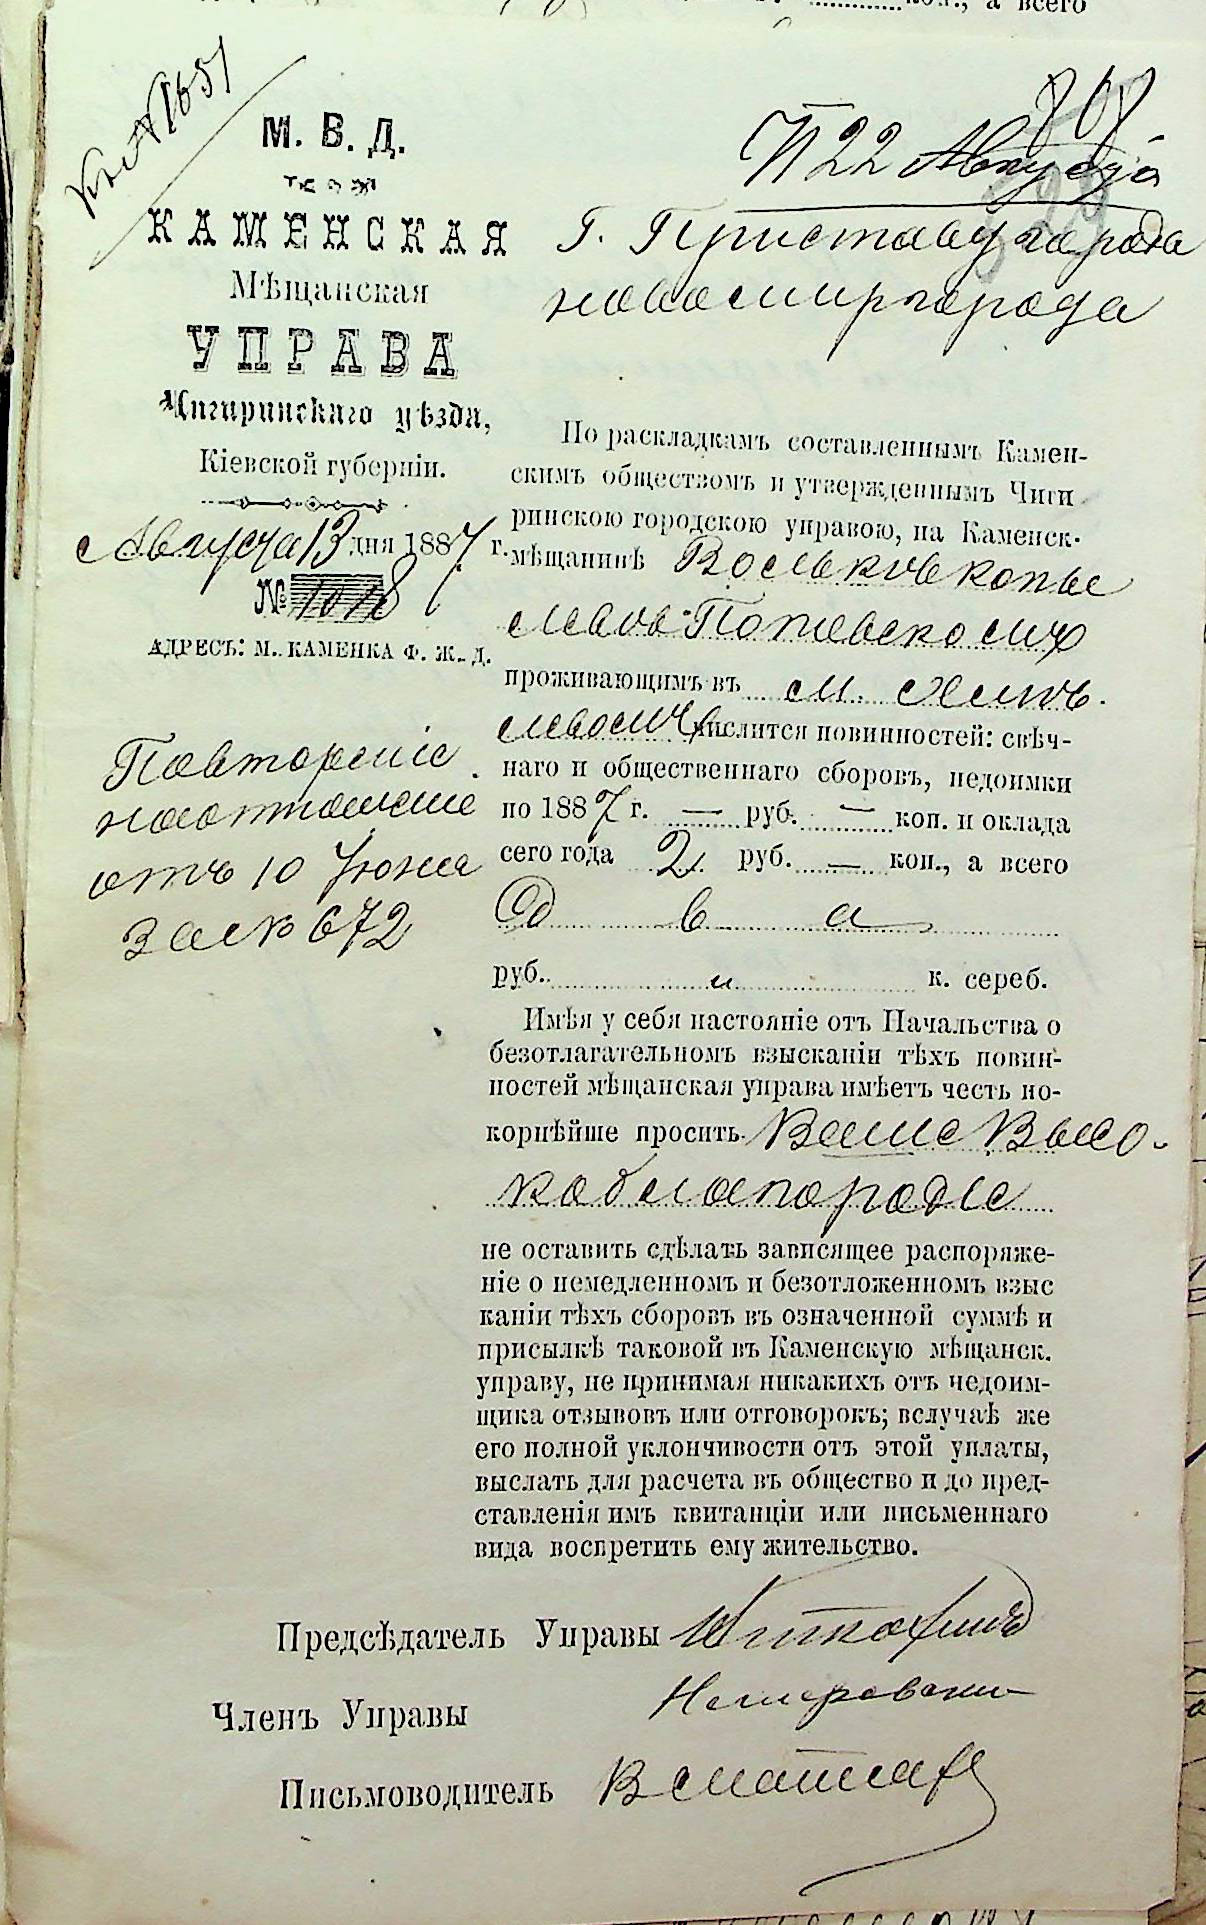 коп., а всего
868
П 22 Августа
329
М. В. Д.
КАМЕНСКАЯ
Мѣщанская
УПРАВА
Чигиринскаго уѣзда,
Кіевской губерніи.
Августа 13 дня 1887 г.
№ 1018
АДРЕСЪ: М. КАМЕНКА Ф. Ж. Д.
Повтореніе
на отношеніе
отъ 10 Іюня
за № 672
Г. Приставу города
Новомиргорода
По раскладкамъ составленнымъ Камен-
скимъ обществомъ и утвержденнымъ Чиги
ринскою городскою управою, на Каменск.
мѣщанинѣ
проживающимъ въ м.
числится повинностей: свѣч-
наго и общественнаго сборовъ, недоимки
по 1887 г. — руб. — коп. и оклада
сего года 2 руб. — коп., а всего
Два
руб. и к. сереб.
Имѣя у себя настояніе отъ Начальства о
безотлагательномъ взысканіи тѣхъ повин-
ностей мѣщанская управа имѣетъ честь по-
корнѣйше просить Ваше Высо-
коблагородіе
не оставить сдѣлать зависящее распоряже-
ніе о немедленномъ и безотложенномъ взыс
каніи тѣхъ сборовъ въ означенной суммѣ и
присылкѣ таковой въ Каменскую мѣщанск.
управу, не принимая никакихъ отъ недоим-
щика отзывовъ или отговорокъ; вслучаѣ же
его полной уклончивости отъ этой уплаты,
выслать для расчета въ общество и до пред-
ставленія имъ квитанціи или письменнаго
вида воспретить ему жительство.
Предсѣдатель Управы
Членъ Управы
Письмоводитель